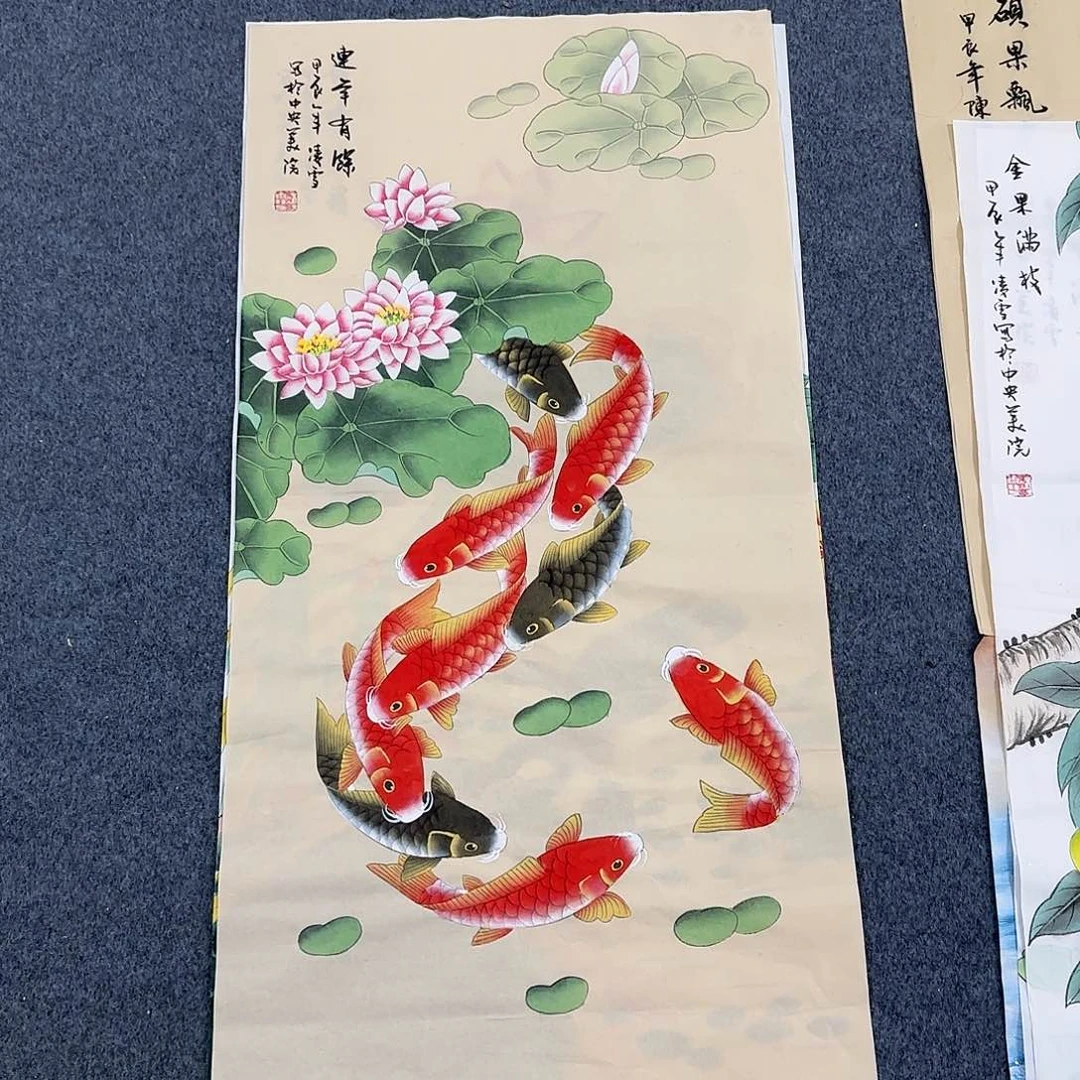 連年有餘
甲辰年 清雪
写於中央美院
碩果飄
甲辰年陳
金果满枝
甲辰年清雪写於中央美院